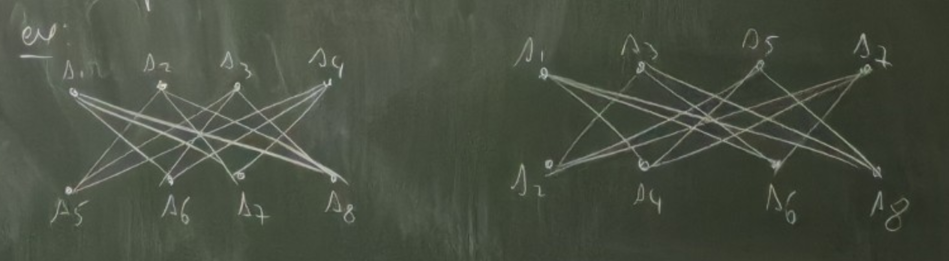 ex:
s1 s2 s3 s4
s5 s6 s7 s8
s1 s3 s5 s7
s2 s4 s6 s8